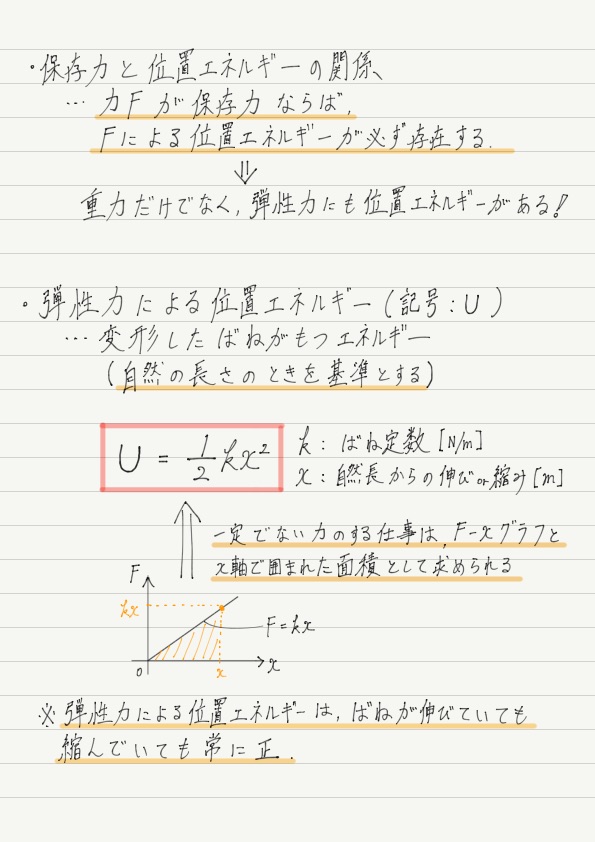 ・保存力と位置エネルギーの関係、
… 力Fが保存力ならば,
Fによる位置エネルギーが必ず存在する.
⇓
重力だけでなく, 弾性力にも位置エネルギーがある!
・弾性力による位置エネルギー (記号:U)
… 変形したばねがもつエネルギー
(自然の長さのときを基準とする)
U = 1/2 kx²
k : ばね定数 [N/m]
x : 自然長からの伸びor縮み [m]
一定でない力のする仕事は, F-xグラフと
x軸で囲まれた面積として求められる
F
kx
F=kx
0
x
x
※ 弾性力による位置エネルギーは, ばねが伸びていても
縮んでいても常に正.